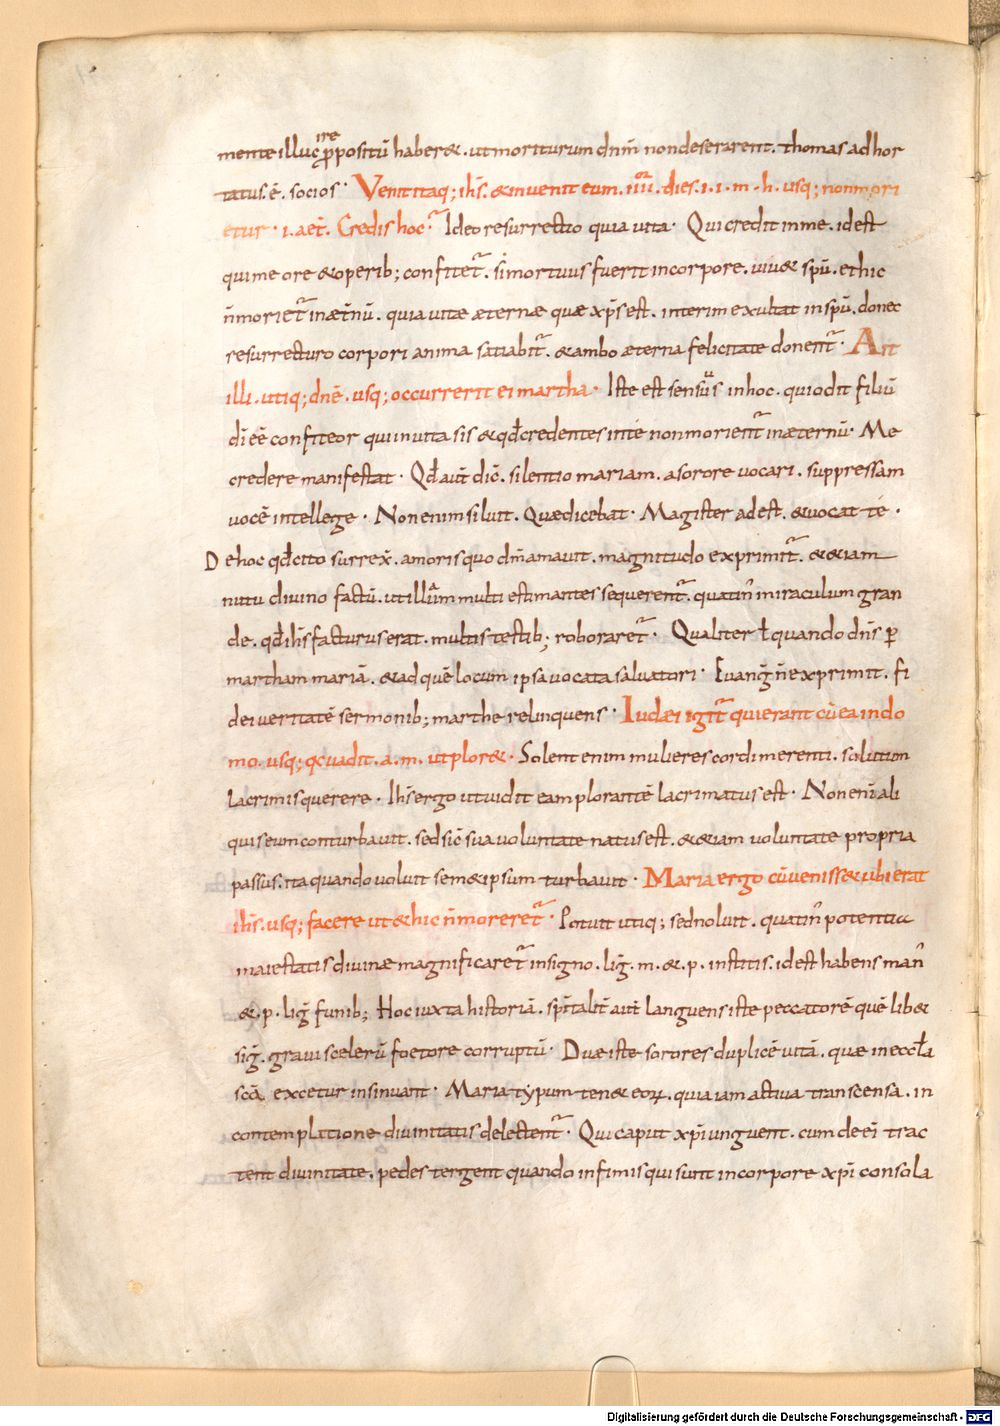 ire
mente illuc ppositū haber&. utmoriturum dnm̄ nondesererent. thomas adhor
tatus. ē. socios· Venit itaq; ihs̄. &inuenit eum. iiiior. dies. i. i. m. h. usq; nonmori
etur· i. aet̄. Credis hoc·? Ideo resurrectio quia uita· Qui credit inme. idest
qui me ore &operib; confitet̄. si mortuus fuerit incorpore. uiu& spū. et hic
n̄moriet̄ inæt̄nū. quia uitæ æternæ quæ xp̄s est. interim exubat inspū. donec
resurrecturo corpori anima satiabit̄. &ambo æterna felicitate donent̄· Ait
illi. utiq; dnē. usq; occurrerit ei martha· Iste est sensus inhoc. qui odit filiū
dī eē confiteor qui inuita sis &qd̄ credentes inte nonmorient̄ inæternū· Me
credere manifestat· Qd̄ aut̄ dic̄. silentio mariam. asorore uocari. suppressam
uocē intellege· Nonenim siluit. Quæ dicebat· Magister adest. &uocat te·
Dehoc qd̄ cito surrex̄. amoris quo dm̄ amauit. magnitudo exprimit̄. &&iam
nutu diuino factū. ut illum multi estimantes sequerent̄. quatin̄ miraculum gran
de. qd̄ ihs̄ facturus erat. multis testib; roboraret̄· Qualiter ł quando dn̄s p
martham mariā. &ad quē locum ipsa uocata saluatori· Euanḡ n̄ exprimit. fi
dei ueritatē sermonib; marthe relinquens· Iudæi igit̄ qui erant cū ea indo
mo. usq; q̄ uadit. a. m. ut plor&· Solent enim mulieres cordi merenti. solutium
lacrimis querere· Ihs̄ ergo ut uidit eam plorantē lacrimatus est· Non enī ali
quis eum conturbauit. sed sic̄ sua uoluntate natus est. &&iam uoluntate propria
passus. ita quando uoluit sem&ipsum turbauit· Maria ergo cū uenisset ubi erat
ihs̄. usq; facere ut &hic n̄ moreret̄· Potuit utiq; sed noluit. quatin̄ potentia
maiestatis diuinæ magnificaret̄ insigno. liḡ. m. &. p. institis. idest habens man̄
&. p. liḡ funib; Hoc iuxta historiā. sp̄talit̄ aut̄ languens iste peccatorē quē lib&
siḡ. graui scelerū foetore corruptū· Duæ iste sorores duplicē uitā. quæ in eccła
scā excetur insinuant· Maria typum ten& eoꝝ. quia iam actiua transcensa. in
contemplatione diuinitatis delectent̄· Qui caput xp̄i unguent. cum de eī trac
tent diuinitate. pedes tergent quando infimis qui sunt incorpore xp̄i consola
Digitalisierung gefördert durch die Deutsche Forschungsgemeinschaft - DFG